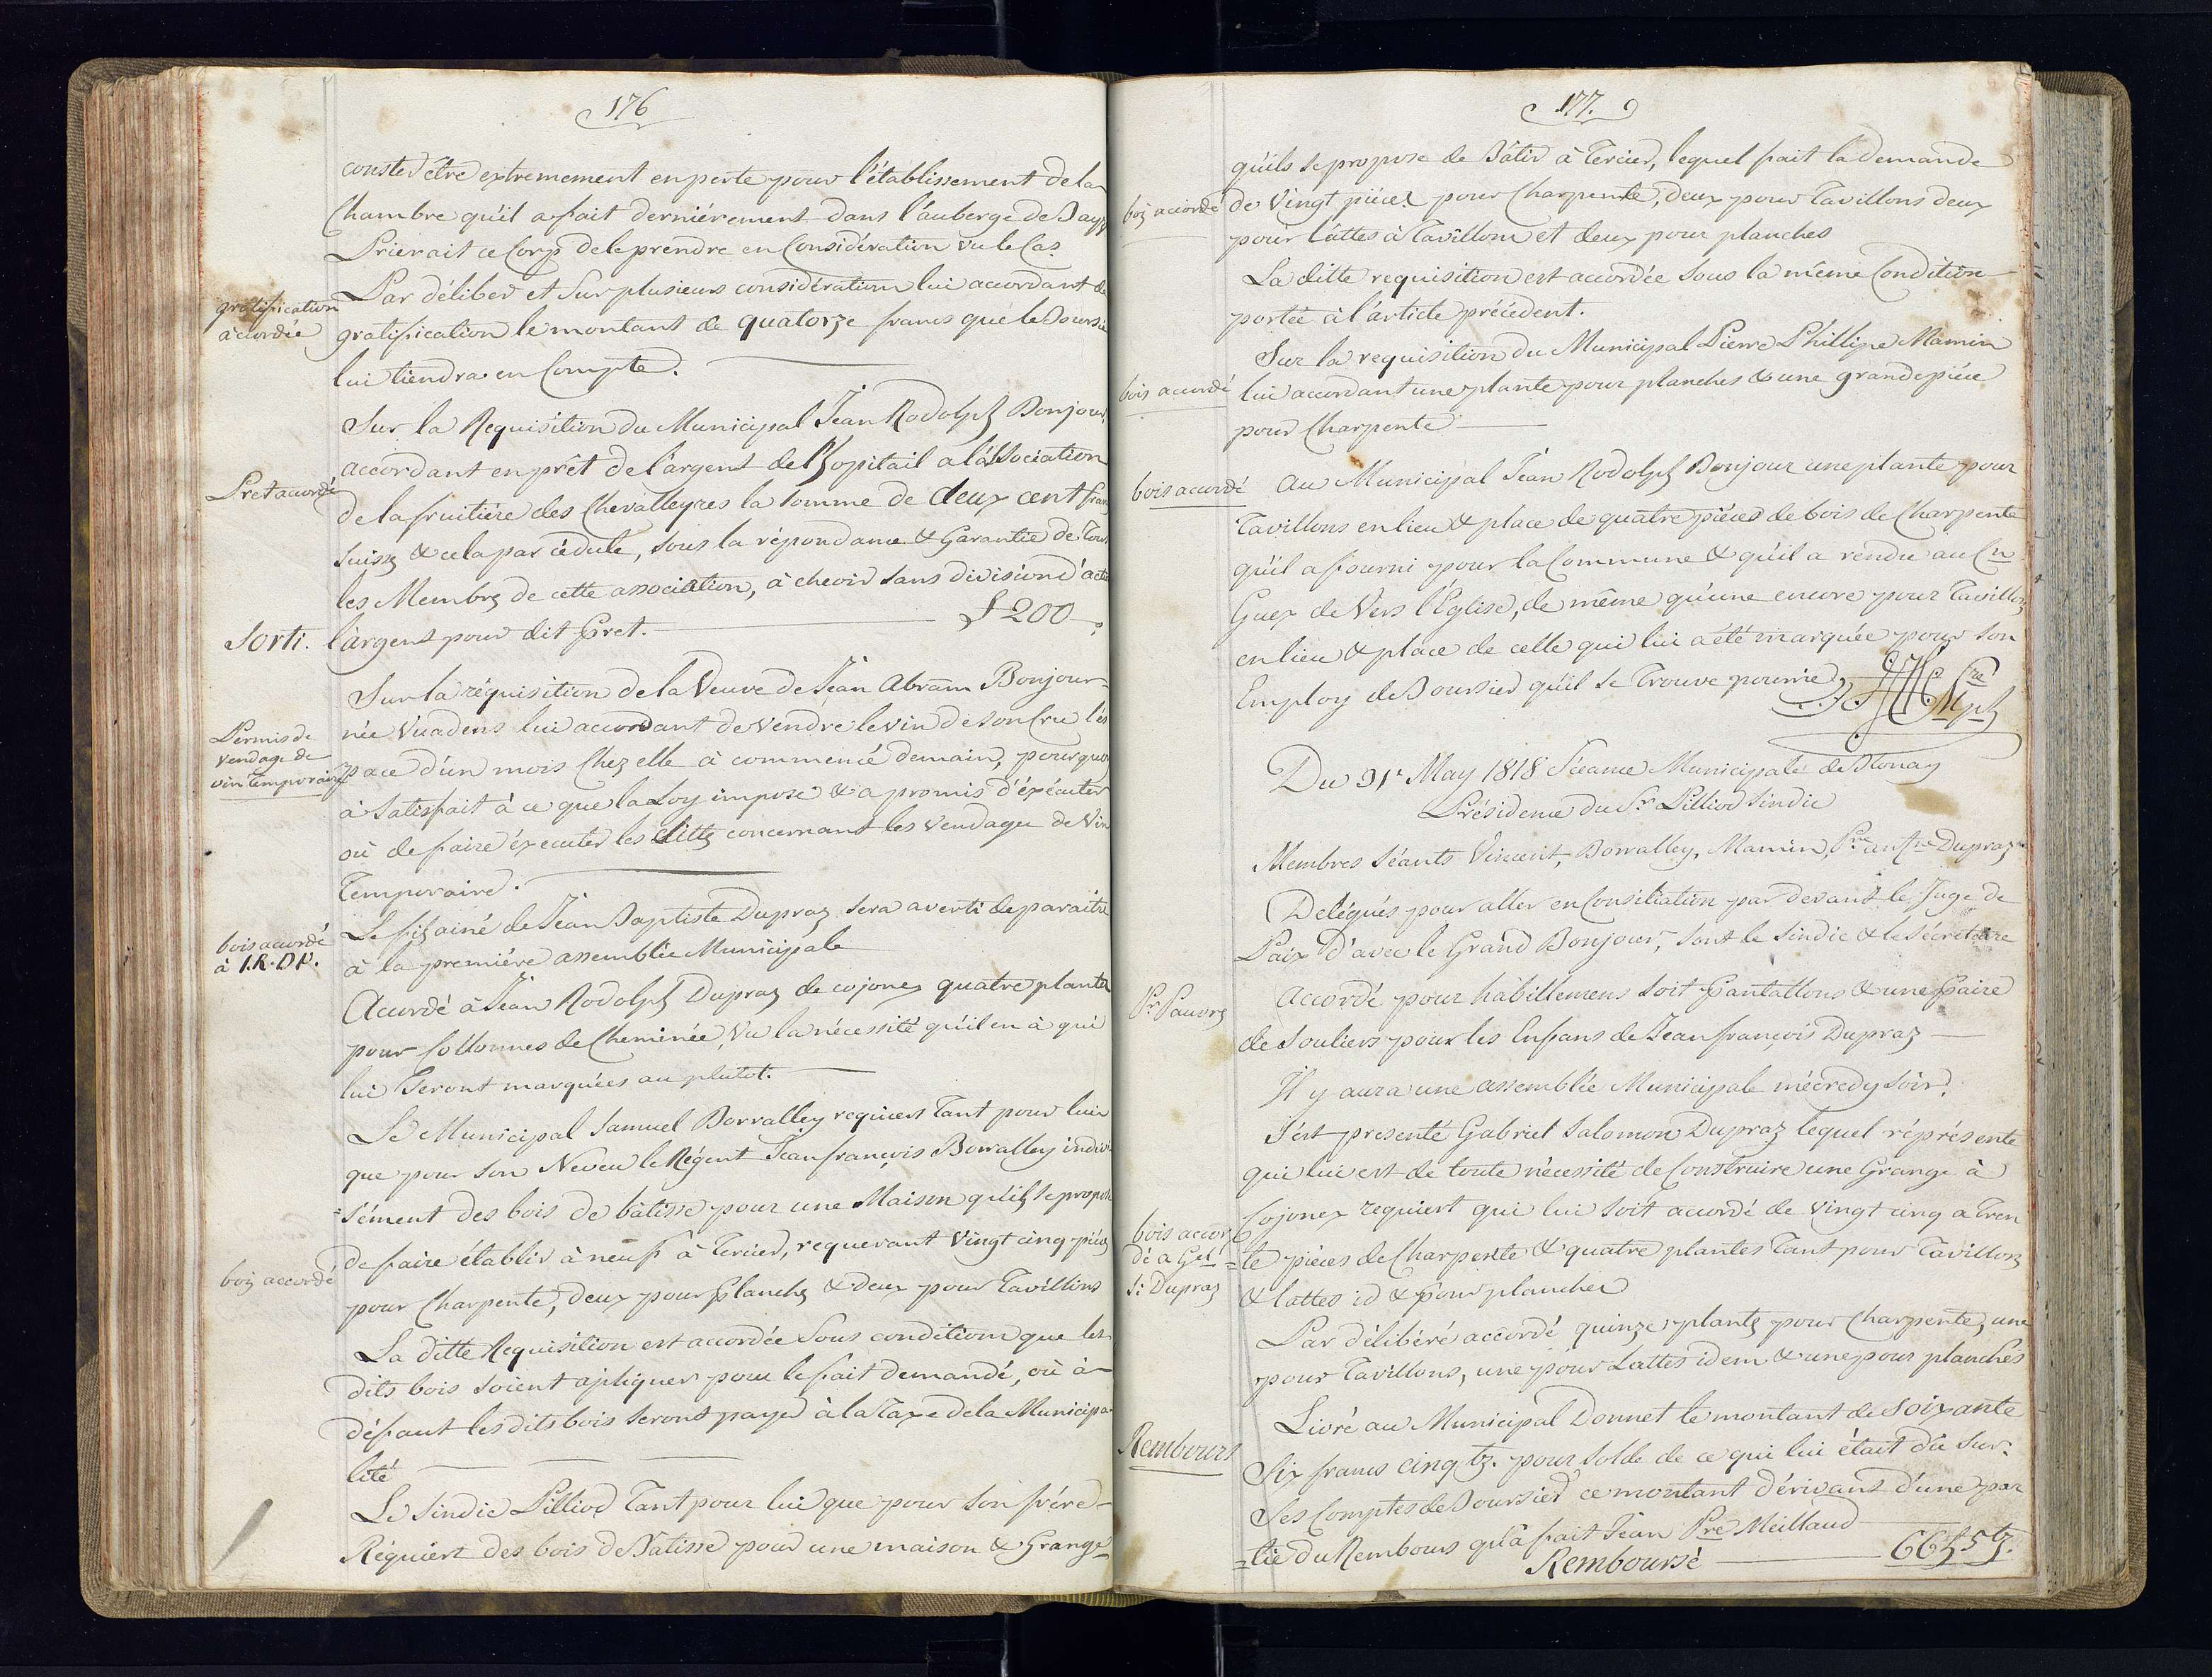 176
conster être extremement en perte pour l'établissement de la
Chambre qu'il a fait derniérement dans l'auberge de Bayz
Prierait ce Corp de le prendre en Considération vu le Cas.
gratification
accordée
Par déliber et Sur plusieurs considération lui accordant de
gratification le montant de quatorze francs que le Boursier
lui tiendra en Compte.
Sur la Requisition du Municipal Jean Rodolph Bonjour,
Pret accordé
accordant en prêt de l'argent de l'hopitail a l'assosciation
de la fruitiére des Chevalleyres la somme de deux cent fran
suisse & cela par cédule, sous la répondance & Garantie de Tous
les Membrs de cette association, à cheoir sans division d'actio
Sorti. l'argent pour dit Pret. £ 200.
Sur la réquisition de la Veuve de Jean Abram Bonjour
Permis de
vendage de
vin temporaire
née Vuadens lui accordant de vendre le vin de son Cru l'és
pace d'un mois Chez elle à commencé demain, pourquoi
à Satisfait à ce que la Loy impose & a promis d'éxécuter
où de faire éxecuter les dittes concernant les Vendage de Vin
Temporaire.
Le fils ainé de Jean Baptiste Dupraz sera averti de paraitre
à la premiére assemblée Municipale
bois accordé
à J.R.DP.
Accordé à Jean Rodolph Dupraz de cojonex quatre plantes
pour Collonnes de Cheminée, Vu la nécessité qu'il en à qui
lui Seront marquées au plutot.
Le Municipal Samuel Borralley requiert Tant pour lui
que pour son Neveu le Régent Jean françois Borralley indivi
=sément des bois de bâtisse pour une Maison qu'ils se propose
bois accordé
de faire établir à neuf à Tercier, requerant Vingt cinq piéces
pour Charpente, deux pour Planchs & deux pour Tavillons
La ditte Requisition est accordée Sous condition que les
dits bois soient apliquer pour le fait demandé, où à
défaut les dits bois seront payer à la Taxe de la Municipa
lité
Le Sindic Pilliod Tant pour lui que pour son frére
Réquiert des bois de Batisse pour une maison & Grange
177.
qu'ils se propose de Bâtir à Tercier, lequel fait la demande
bois accordé
de Vingt piéces pour Charpente, deux pour Tavillons deux
pour Lattes à Tavillons et deux pour planches
La ditte requisition est accordée Sous la même Condition
portée à l'article précédent.
Sur la requisition du Municipal Pierre Phillipe Mamin
bois accordé
lui accordant une plante pour planches & une grande piéce
pour Charpente
bois accordé
au Municipal Jean Rodolph Bonjour une plante pour
Tavillons en lieu & place de quatre piéces de bois de Charpente
qu'il a fourni pour la Commune & qu'il a rendu au Cn
Guex de Vers l'Eglise, de même qu'une encore pour Tavillons
en lieu & place de celle qui lui a été marquée pour son
Employ de Boursier qu'il se Trouve pourrie
Du 31e May 1818 Séance Municipale de Blonay
Présidence du Sr Pilliod Sindic
Membres Séants Vincent, Borralley, Mamin, Dupraz
Delégués pour aller en Consiliation par devant le Juge de
Paix d'avec le Grand Bonjour, sont le Sindic & le Sécretaire
Pr Pauvrs
Accordé pour habillemens soit Pantallons & une Paire
de Souliers pour les Enfans de Jean françois Dupraz
Il y aura une assemblée Municipale mécredy soir.
S'est presenté Gabriel Salomon Dupraz lequel réprésente
qui lui est de toute nécessité de Construire une Grange à
bois accor
dé a Gel
S: Dupraz
Cojonex requiert qui lui soit accordé de vingt cinq a Tren
=te piéces de Charpente & quatre plantes Tant pour Tavillons
& lattes id & pour planches
Par délibéré accordé quinze plants pour Charpente, une
pour Tavillons, une pour Lattes idem & une pour planchés
Rembours
Livré au Municipal Donnet le montant de soixante
Six francs cinq bz. pour Solde de ce qui lui était dû Sur
Ses Comptes de Boursier ce montant dérivant d'une par
=tie du Rembours qu'à fait Jean Pre Meillaud
Remboursé 66 £ 5 bz.